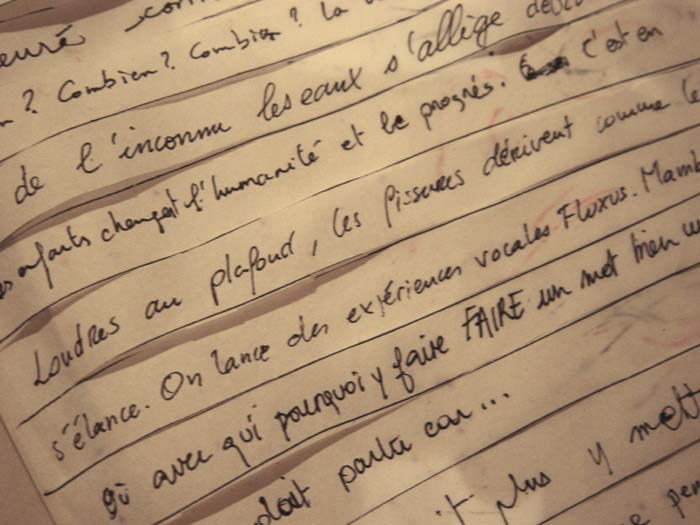 n? Combien? Combien? la
de l'inconnu les eaux s'allège
enfants changent l'humanité et le progrés. c'est en
Loudres au plafond, les fissures dérivent comme le
s'élance. On lance des expériences vocales Fluxus. Mamb
où avec qui pourquoi y faire FAIRE un mot bien
doit parler car...
t plus y mett
e pen